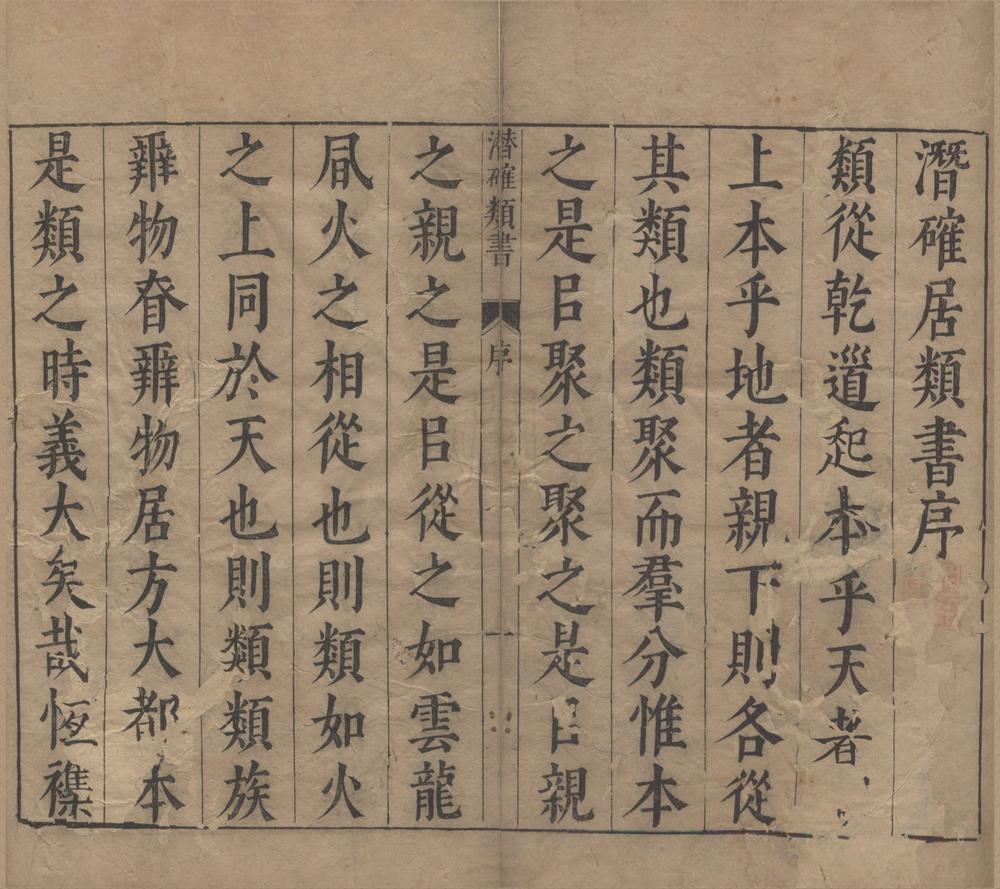 潛確居類書序
類從乾衟起本乎天者
上本乎地者親下則各從
其類也類聚而羣分惟本
之是㠯聚之聚之是㠯親
潛確類書
序
一
之親之是㠯從之如雲龍
風火之相從也則類如火
之上同於天也則類類族
辨物昚辨物居方大都本
是類之時義大矣哉恆襍